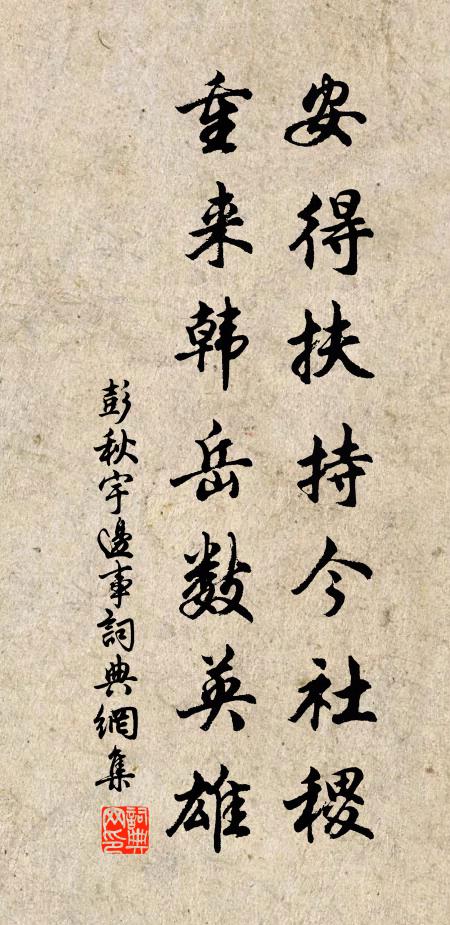 安得扶持今社稷
重来韩岳数英雄
彭秋宇邊事詞典網集
詞典
网印